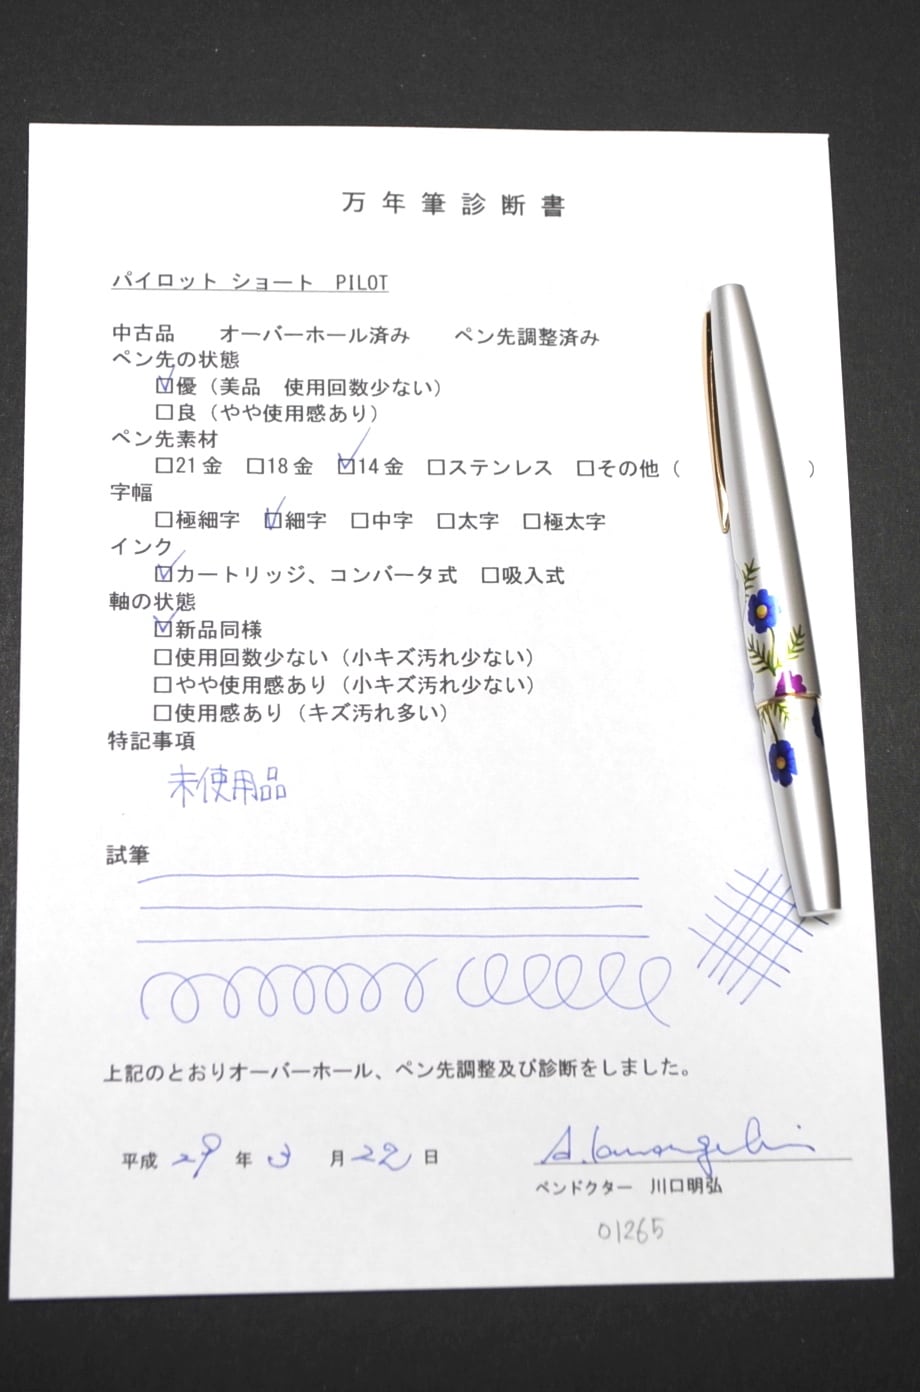 万年筆診断書
パイロット ショート PILOT
中古品 オーバーホール済み ペン先調整済み
ペン先の状態
☑優（美品 使用回数少ない）
□良（やや使用感あり）
ペン先素材
□21金 □18金 ☑14金 □ステンレス □その他（ ）
字幅
□極細字 ☑細字 □中字 □太字 □極太字
インク
☑カートリッジ、コンバータ式 □吸入式
軸の状態
☑新品同様
□使用回数少ない（小キズ汚れ少ない）
□やや使用感あり（小キズ汚れ少ない）
□使用感あり（キズ汚れ多い）
特記事項
未使用品
試筆
上記のとおりオーバーホール、ペン先調整及び診断をしました。
平成 29 年 3 月 22 日
ペンドクター 川口明弘
01265